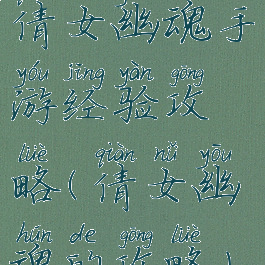 倩女幽魂手
yóu jīng yàn gōng
游经验攻
lüè qiàn nǚ yōu
略(倩女幽
hún de gōng lüè
魂的攻略)